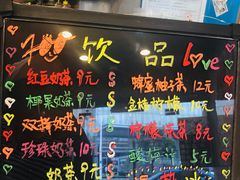 饮 品 Love
红豆奶茶 9元 S
椰果奶茶 9元 S
双拼奶茶 9元 S
珍珠奶茶 10元 S
奶茶 9元
蜂蜜柚子茶 12元
金桔柠檬 10元
柠檬茶 8元
酸梅 5元